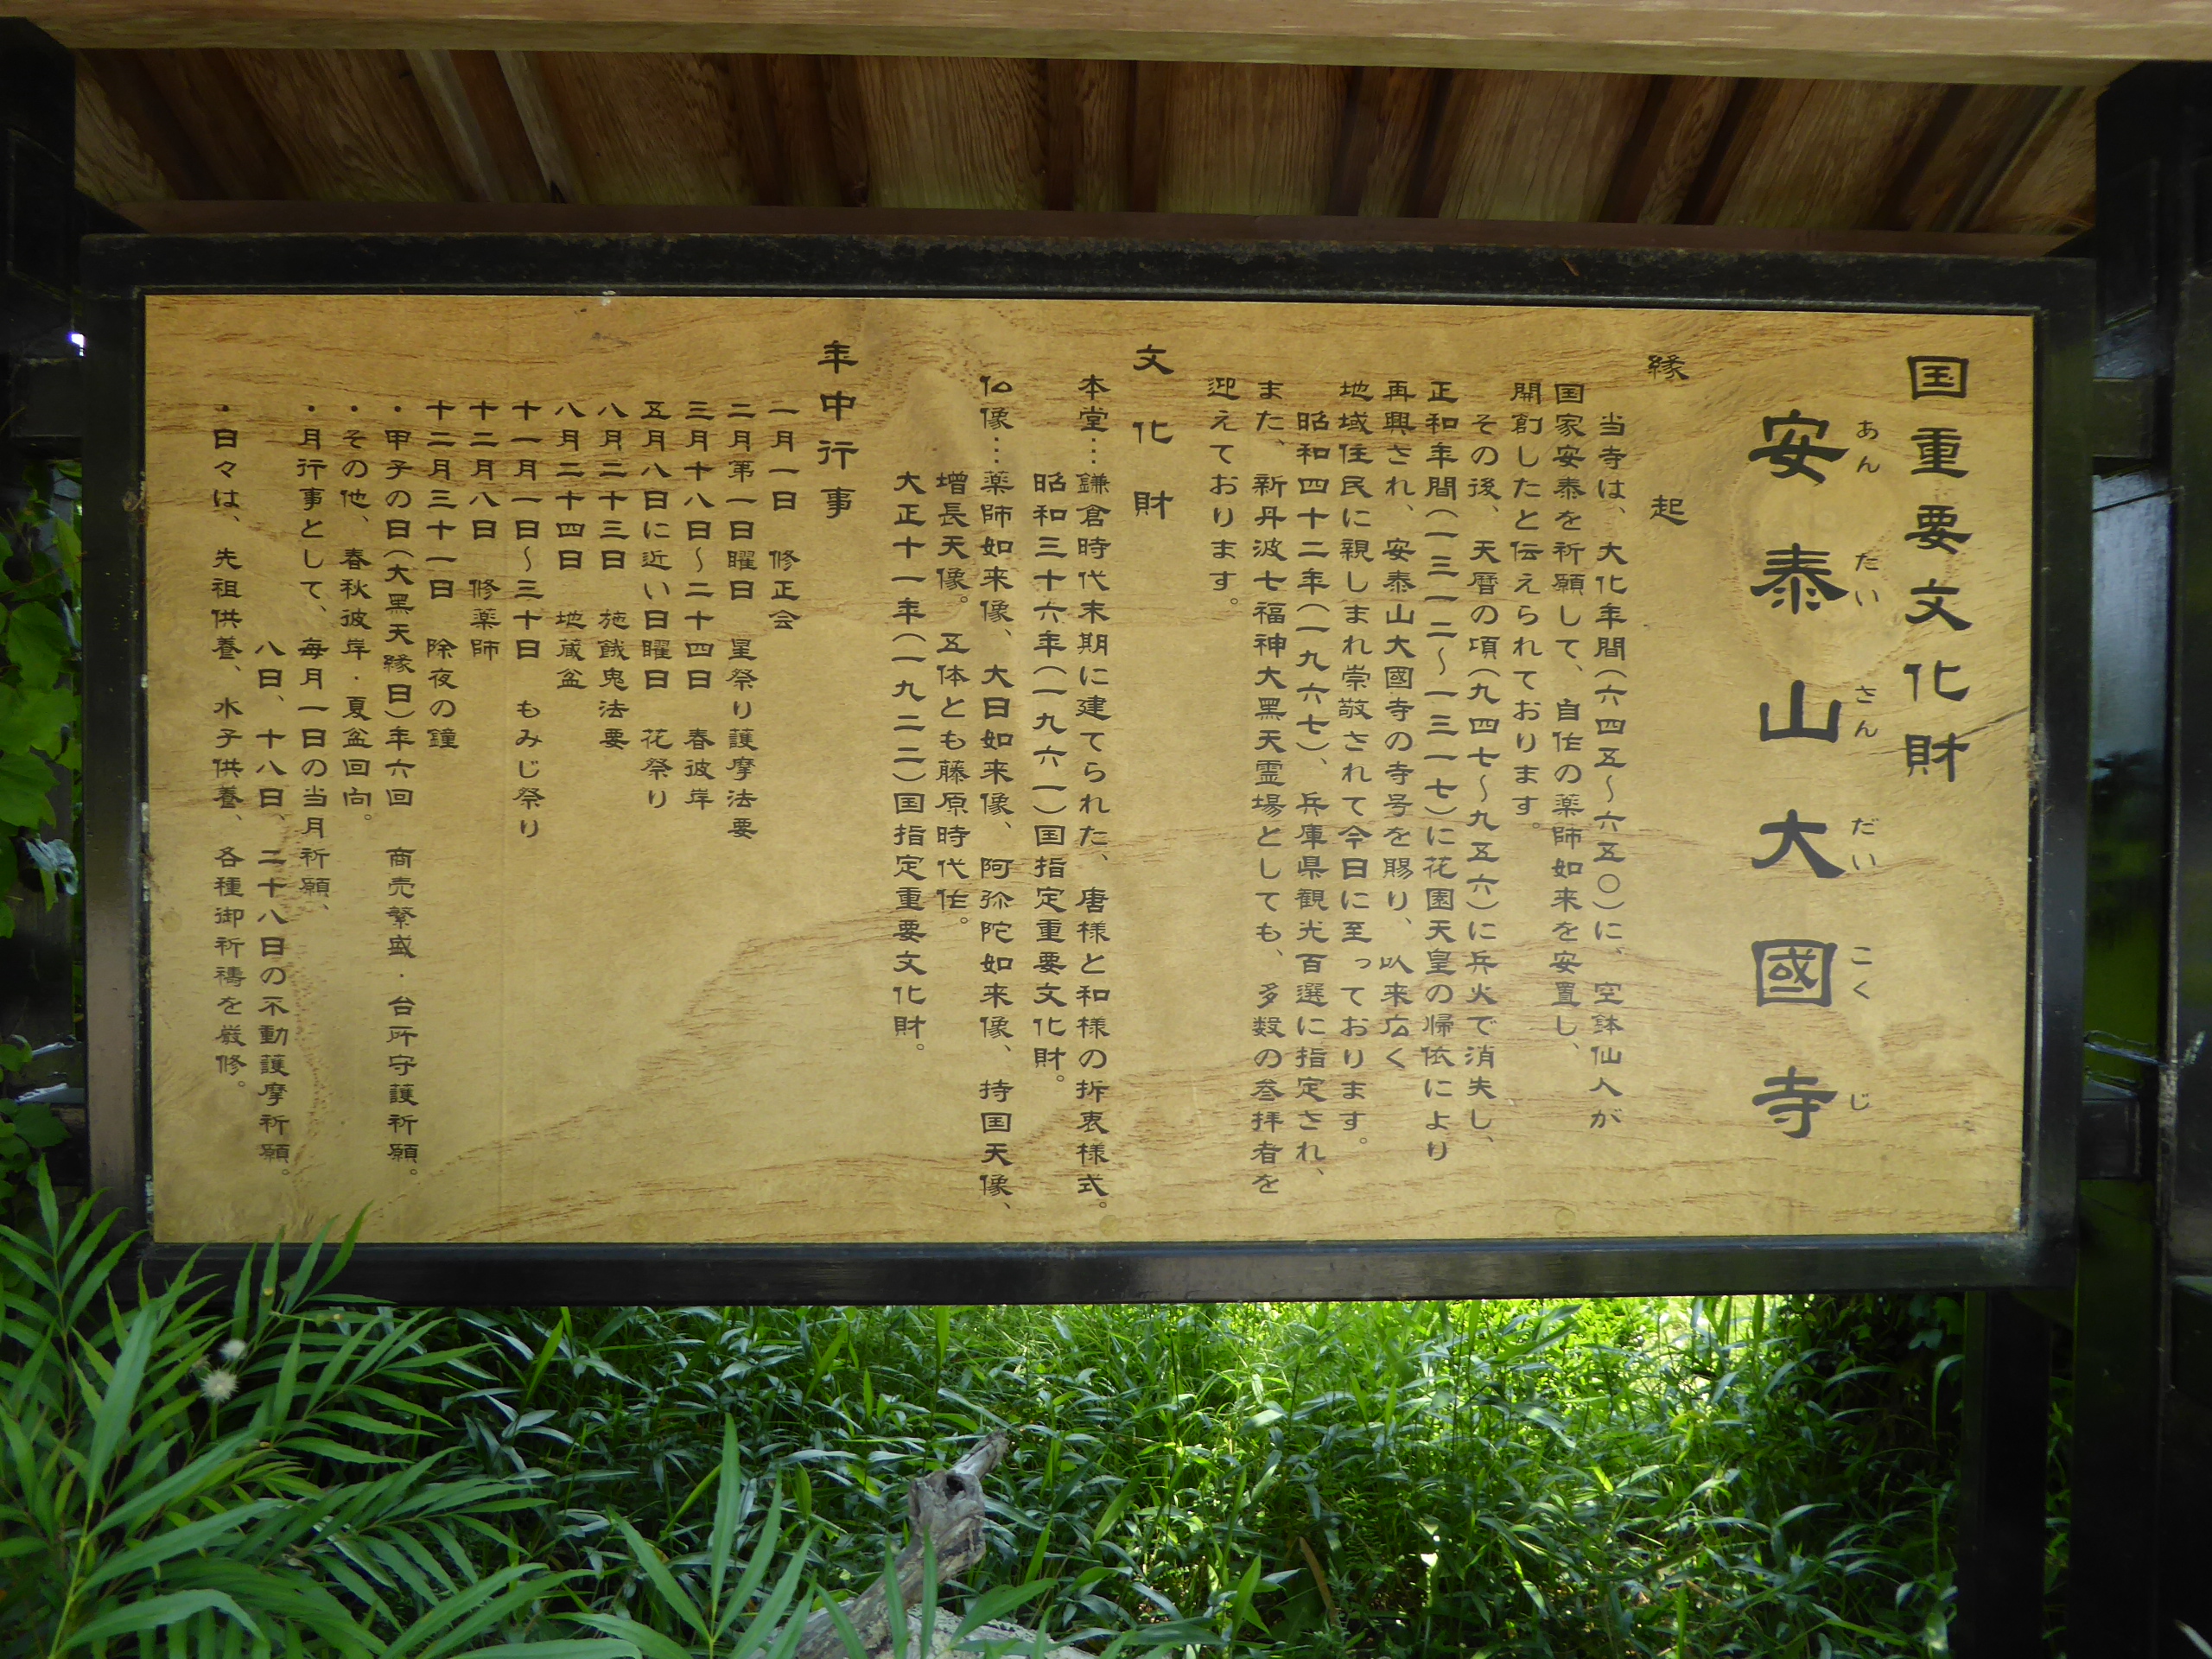 国重要文化財
安泰山大國寺
あんたいさんだいこくじ
縁起
当寺は、大化年間(六四五〜六五〇)に、空鉢仙人が
国家安泰を祈願して、自作の薬師如来を安置し、
開創したと伝えられております。
その後、天暦の項(九四七〜九五六)に兵火で消失し、
正和年間(一三一二〜一三一七)に花園天皇の帰依により
再興され、安泰山大國寺の寺号を賜り、以来広く
地域住民に親しまれ崇敬されて今日に至っております。
昭和四十二年(一九六七)、兵庫県観光百選に指定され、
また、新丹波七福神大黒天霊場としても、多数の参拝者を
迎えております。
文化財
本堂…鎌倉時代末期に建てられた、唐様と和様の折衷様式。
昭和三十六年(一九六一)国指定重要文化財。
仏像…薬師如来像、大日如来像、阿弥陀如来像、持国天像、
増長天像。五体とも藤原時代作。
大正十一年(一九二二)国指定重要文化財。
年中行事
一月一日 修正会
二月第一日曜日 星祭り護摩法要
三月十八日〜二十四日 春彼岸
五月八日に近い日曜日 花祭り
八月二十三日 施餓鬼法要
八月二十四日 地蔵盆
十一月一日〜三十日 もみじ祭り
十二月八日 修薬師
十二月三十一日 除夜の鐘
・甲子の日(大黒天縁日)年六回 商売繁盛・台所守護祈願。
・その他、春秋彼岸・夏盆回向。
・月行事として、毎月一日の当月祈願、
八日、十八日、二十八日の不動護摩祈願。
・日々は、先祖供養、水子供養、各種御祈祷を厳修。